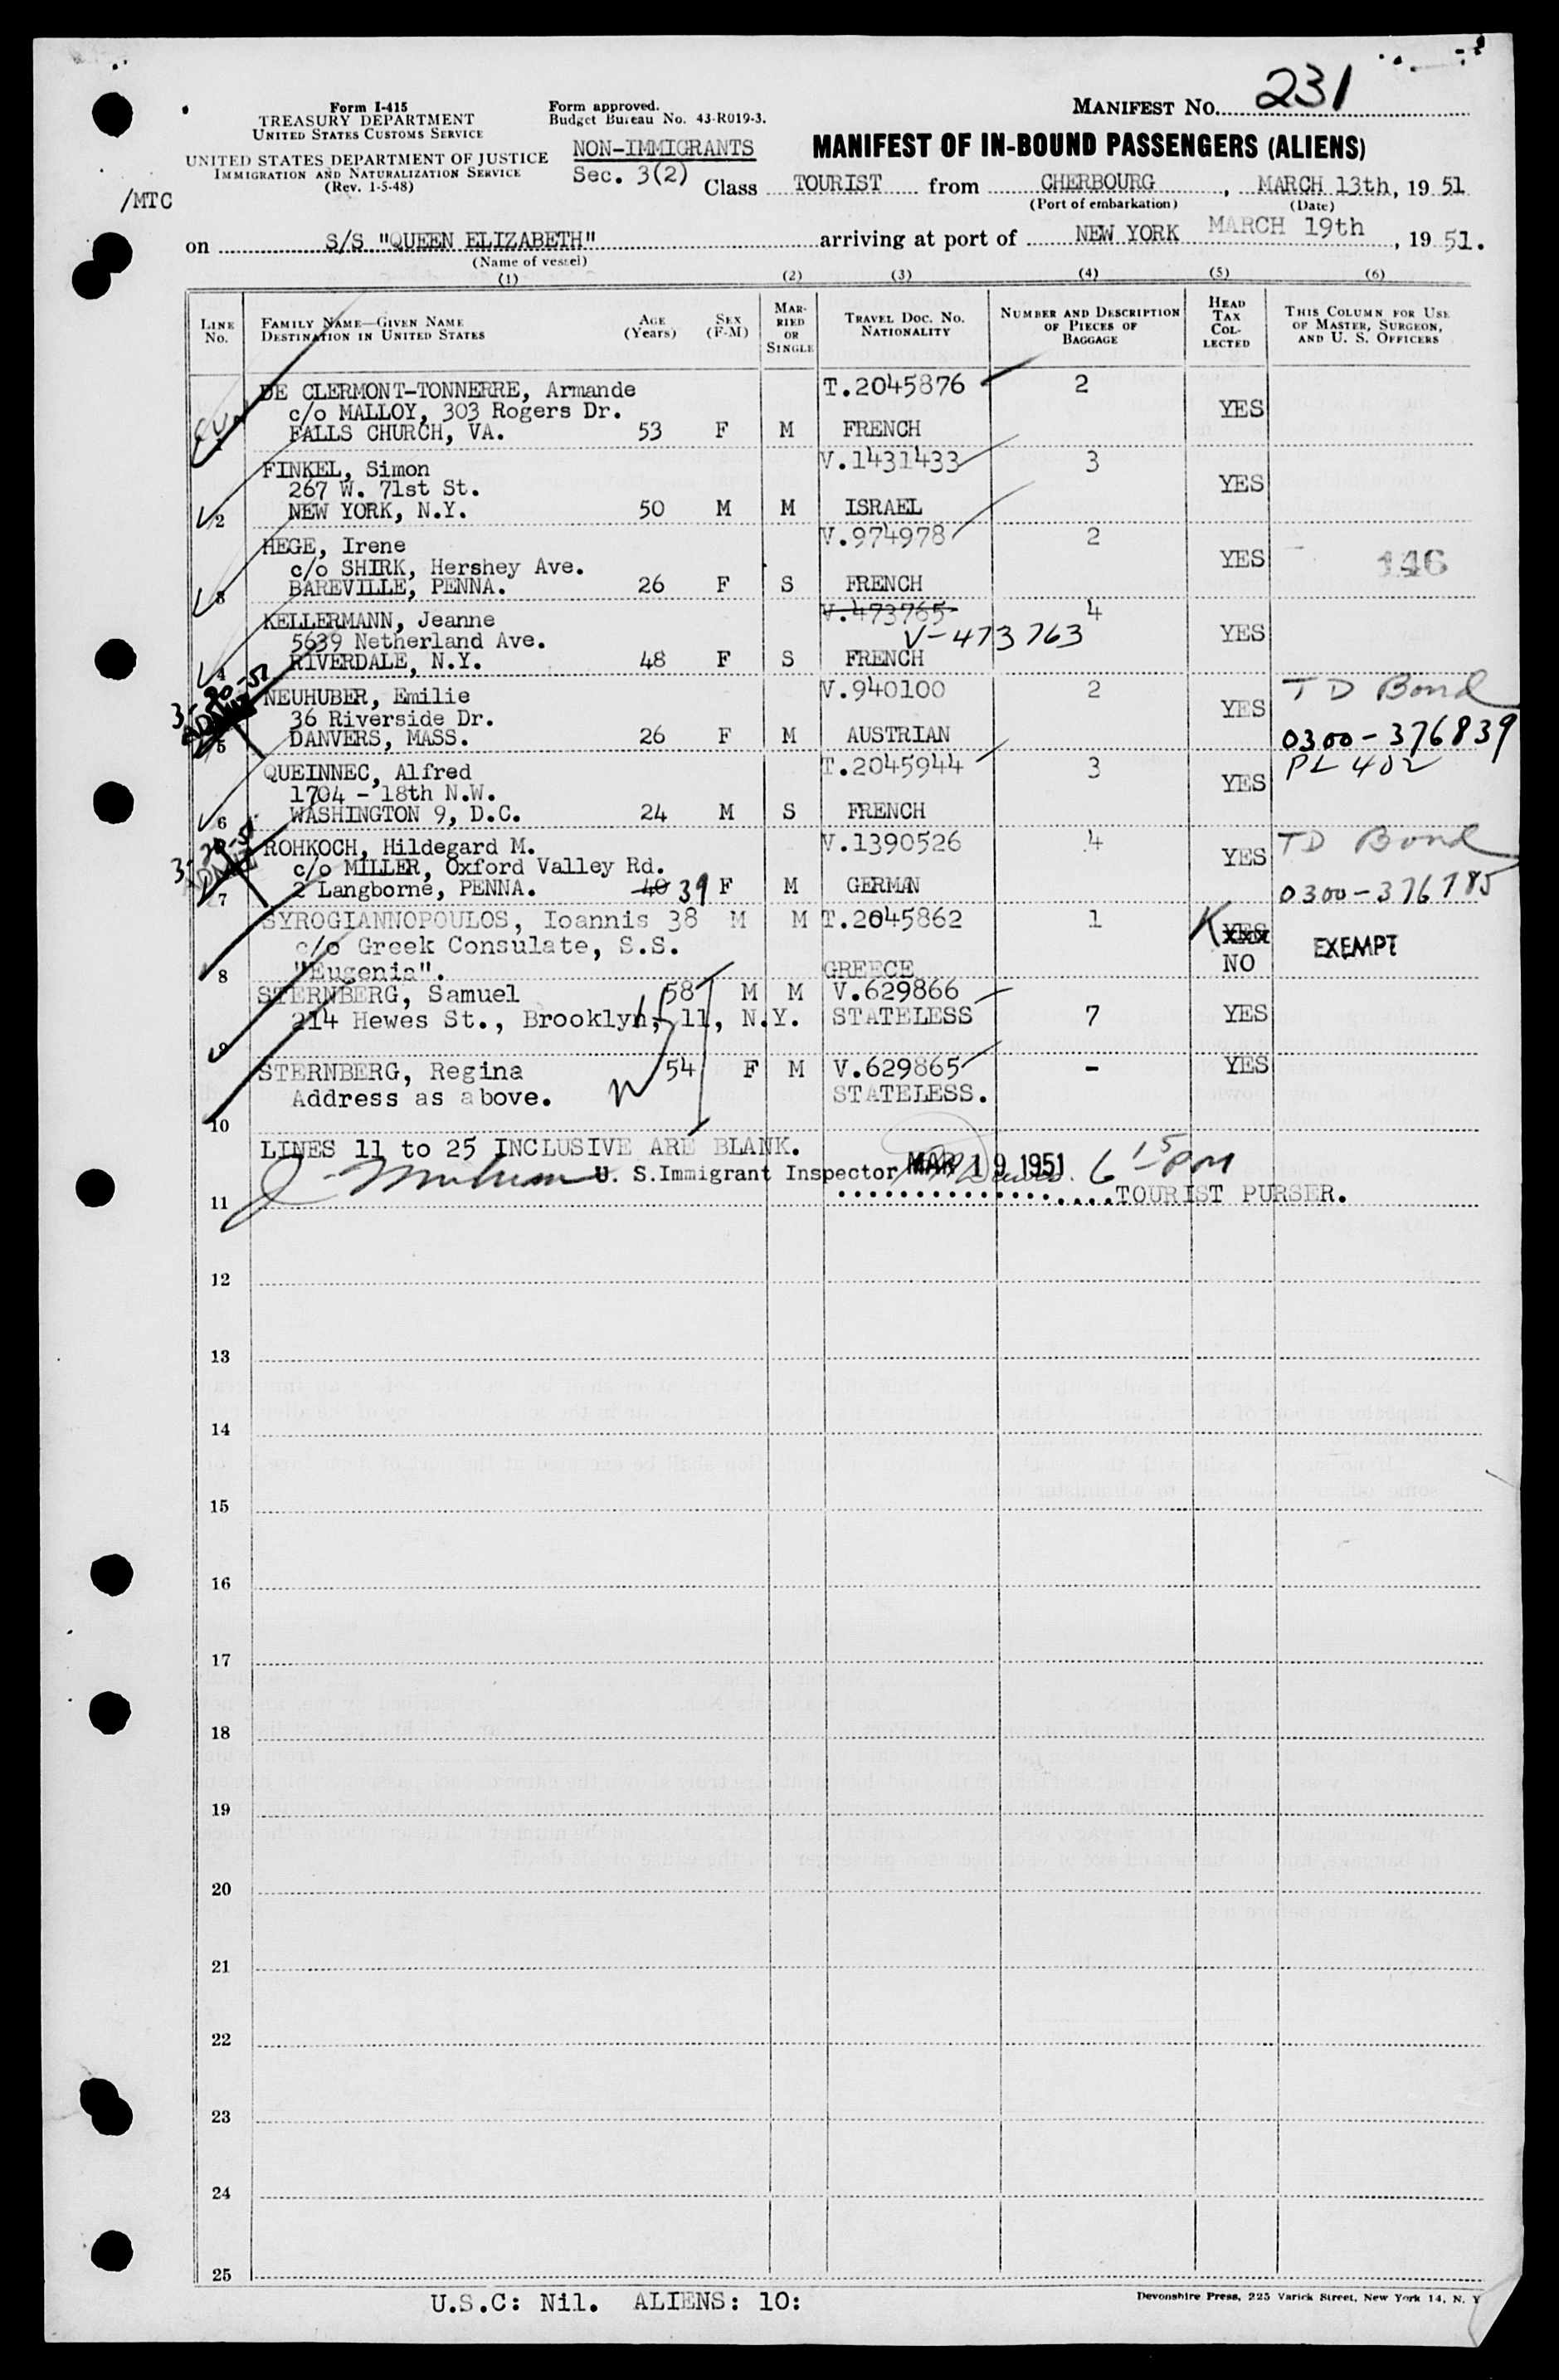 Form I-415
TREASURY DEPARTMENT
UNITED STATES CUSTOMS SERVICE
UNITED STATES DEPARTMENT OF JUSTICE
IMMIGRATION AND NATURALIZATION SERVICE
(Rev. 1-5-48)
/MTC
Form approved.
Budget Bureau No. 43-R019-3.
NON-IMMIGRANTS
Sec. 3(2)
MANIFEST NO. 231
MANIFEST OF IN-BOUND PASSENGERS (ALIENS)
Class TOURIST from CHERBOURG, MARCH 13th, 19 51
(Port of embarkation) (Date)
on S/S "QUEEN ELIZABETH" arriving at port of NEW YORK MARCH 19th, 19 51.
(Name of vessel)
(1) (2) (3) (4) (5) (6)
LINE No. FAMILY NAME—GIVEN NAME DESTINATION IN UNITED STATES AGE (Years) SEX (F-M) MARRIED OR SINGLE TRAVEL DOC. NO. NATIONALITY NUMBER AND DESCRIPTION OF PIECES OF BAGGAGE HEAD TAX COLLECTED THIS COLUMN FOR USE OF MASTER, SURGEON, AND U. S. OFFICERS
DE CLERMONT-TONNERRE, Armande T.2045876 2
c/o MALLOY, 303 Rogers Dr. YES
FALLS CHURCH, VA. 53 F M FRENCH
FINKEL, Simon V.1431433 3
267 W. 71st St. YES
2 NEW YORK, N.Y. 50 M M ISRAEL
HEGE, Irene V.974978 2
c/o SHIRK, Hershey Ave. YES 146
3 BAREVILLE, PENNA. 26 F S FRENCH
KELLERMANN, Jeanne V.473765 4
5639 Netherland Ave. V-473763 YES
4 RIVERDALE, N.Y. 48 F S FRENCH
3-20-51 NEUHUBER, Emilie V.940100 2 TD Bond
36 Riverside Dr. YES
5 DANVERS, MASS. 26 F M AUSTRIAN 0300-376839
QUEINNEC, Alfred T.2045944 3 PL 402
1704 - 18th N.W. YES
6 WASHINGTON 9, D.C. 24 M S FRENCH
3-20-51 ROHKOCH, Hildegard M. V.1390526 4 TD Bond
c/o MILLER, Oxford Valley Rd. YES
7 2 Langborne, PENNA. 40 39 F M GERMAN 0300-376785
SYROGIANNOPOULOS, Ioannis 38 M M T.2045862 1 K YES
c/o Greek Consulate, S.S. xxx EXEMPT
8 "Eugenia". GREECE NO
STERNBERG, Samuel 58 M M V.629866
214 Hewes St., Brooklyn, 11, N.Y. STATELESS 7 YES
9
STERNBERG, Regina 54 F M V.629865 - YES
Address as above. STATELESS.
10
LINES 11 to 25 INCLUSIVE ARE BLANK.
U. S. Immigrant Inspector MAR 19 1951 6 15 PM
11 ....................TOURIST PURSER.
12
13
14
15
16
17
18
19
20
21
22
23
24
25
U.S.C: Nil. ALIENS: 10:
Devonshire Press, 225 Varick Street, New York 14, N. Y